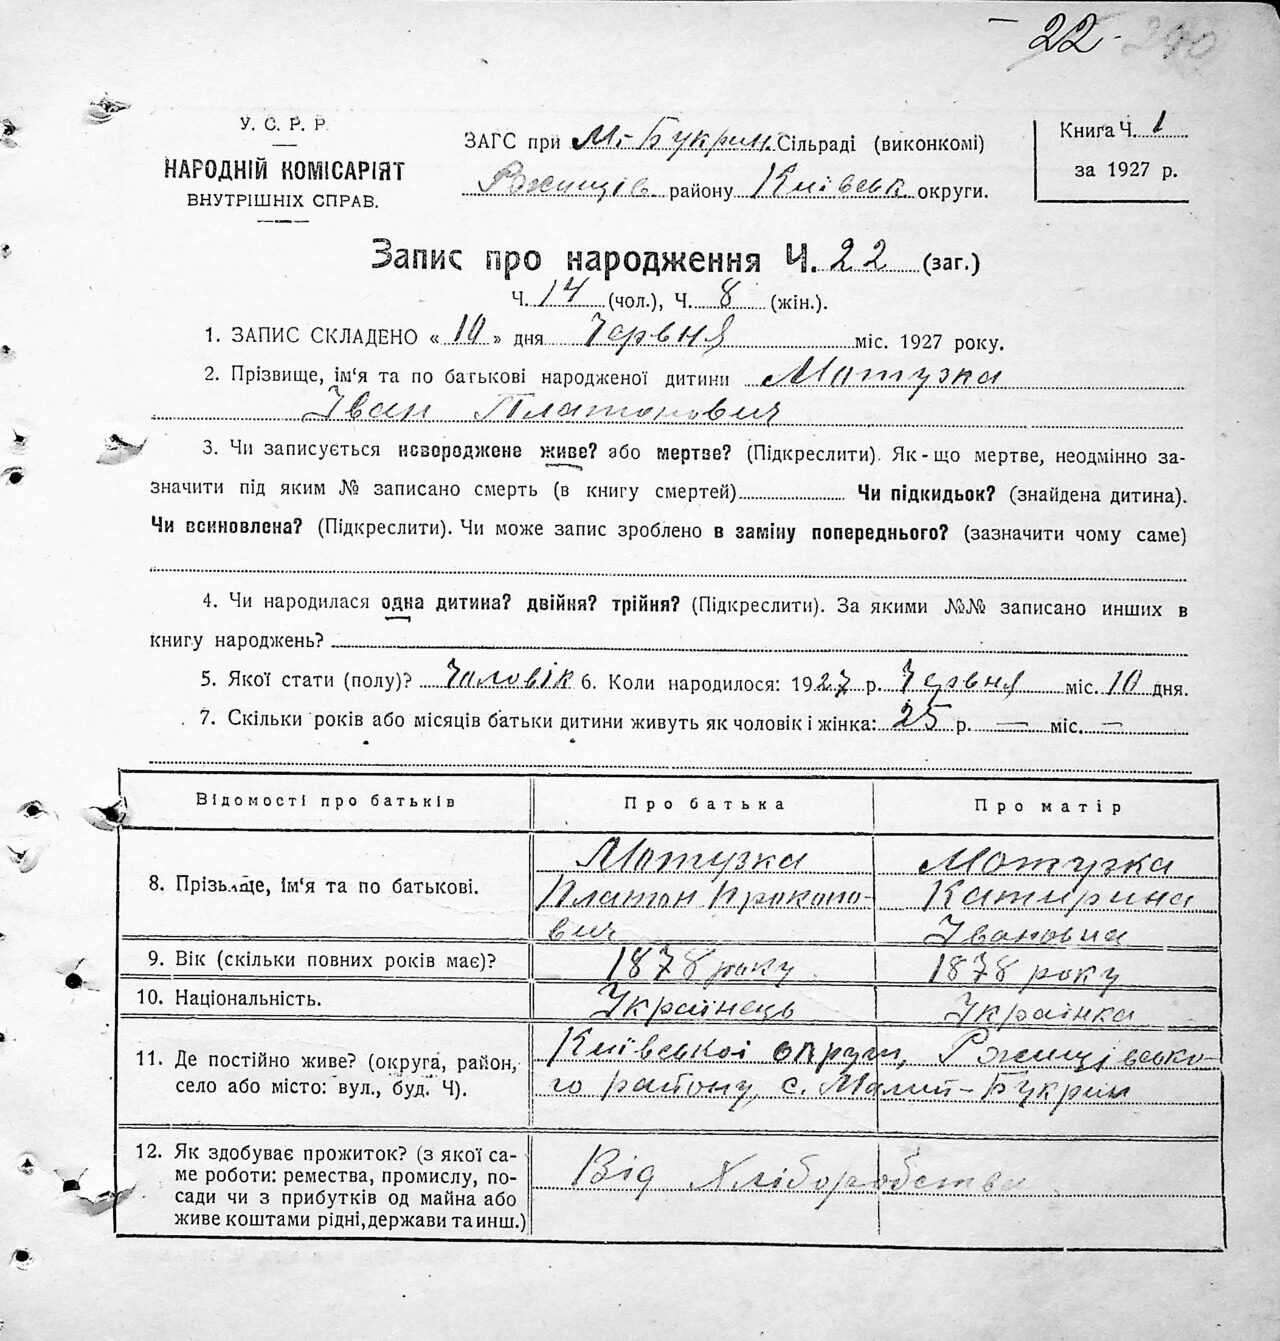 22.
У. С. Р. Р.
НАРОДНІЙ КОМІСАРІЯТ
ВНУТРІШНІХ СПРАВ.
ЗАГС при М.-Букрин. Сільраді (виконкомі)
Ржищів району Київськ округи.
Книга Ч. 1
за 1927 р.
Запис про народження Ч. 22 (заг.)
Ч. 14 (чол.), Ч. 8 (жін.).
1. ЗАПИС СКЛАДЕНО « 10 » дня Червня міс. 1927 року.
2. Прізвище, ім'я та по батькові народженої дитини Мотузка
Іван Платонович
3. Чи записується новороджене живе? або мертве? (Підкреслити). Як-що мертве, неодмінно за-
значити під яким № записано смерть (в книгу смертей) Чи підкидьок? (знайдена дитина).
Чи всиновлена? (Підкреслити). Чи може запис зроблено в заміну попереднього? (зазначити чому саме)
4. Чи народилася одна дитина? двійня? трійня? (Підкреслити). За якими №№ записано инших в
книгу народжень?
5. Якої стати (полу)? Чоловік 6. Коли народилося: 1927 р. Червня міс. 10 дня.
7. Скільки років або місяців батьки дитини живуть як чоловік і жінка: 25 р. — міс. —
Відомості про батьків Про батька Про матір
8. Прізьвище, ім'я та по батькові.
Мотузка
Платон Прокопо-
вич
Мотузка
Катирина
Івановна
9. Вік (скільки повних років має)? 1878 року 1878 року
10. Національність. Українець Українка
11. Де постійно живе? (округа, район,
село або місто: вул., буд. Ч).
Київської округи, Ржищівсько-
го району, с. Малий-Букрин
12. Як здобуває прожиток? (з якої са-
ме роботи: ремества, промислу, по-
сади чи з прибутків од майна або
живе коштами рідні, держави та инш.)
Від Хліборобства